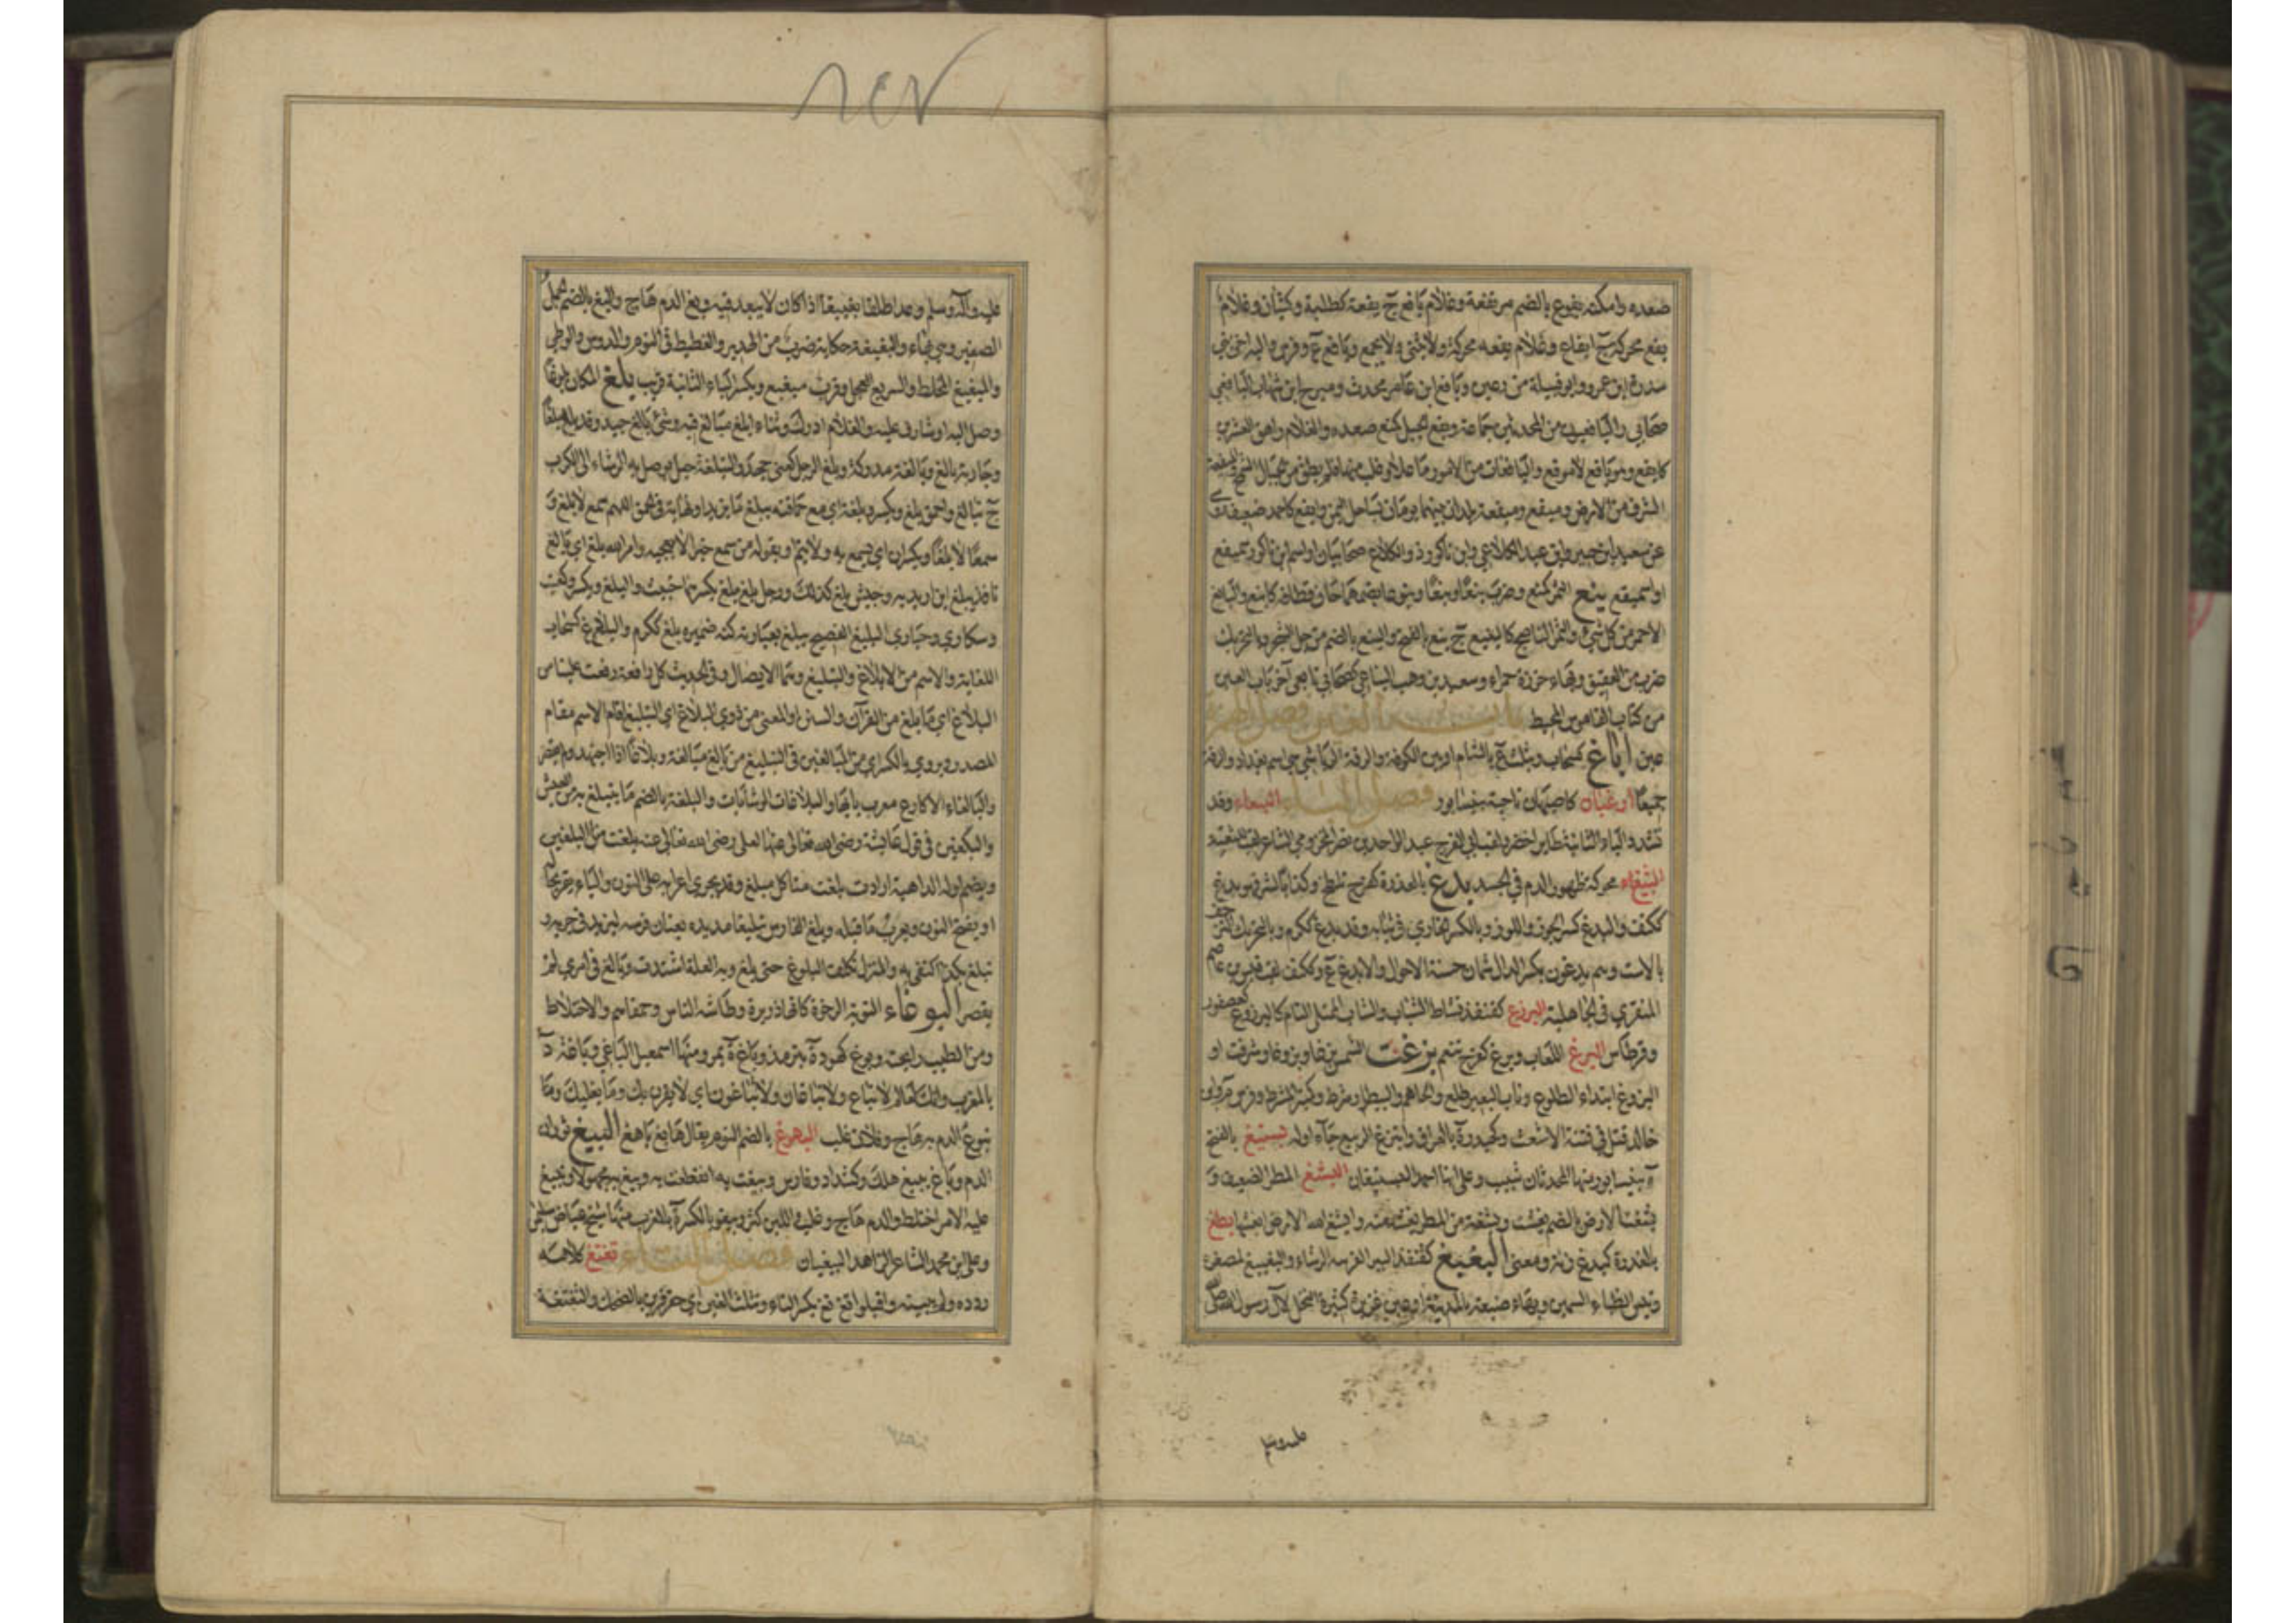 صعده وامكنه يفوع بالضم مرتفعة وغلام يافع ج يفعة كطلبة وكثبان وغلام
يفع محركة ج ايفاع وغلام يفعه محركة ولا يثنى ولا يجمع ويافع ع وفرس والبة اخي بني
سدرة ابن عمرو وابو قبيلة من رعين ويافع ابن عامر محدث ومبرح ابن شهاب اليافعي
صحابي واليافعيون من المحدثين جماعة ويفع الجبل كمنع صعده والغلام راهق العشرين
كايفع وهو يافع لا موفع واليافعات من الامور ما علا وغلب منها فلم يطق من الجبال الشمخ
الشرف من الارض وميفع وميفعة بلدان بينهما يومان بساحل اليمن وايفع كاحمد ضعيف روى
عن سعيد ابن جبير وابن عبد الكلاعي وابن ناكور ذو الكلاع صحابيان او اسم ابن ناكور سميفع
او اسميفع ينع الثمر كمنع وضرب ينعا وينعا وينوعا بضمهما حان قطافه كاينع واليانع
الاحمر من كل شيء والثمر الناضج كالينيع ج ينع بالفتح والينع بالضم من جل الشجر وبالتحريك
ضرب من العقيق وبهاء خرزة حمراء وسعيد بن وهب اليناعي كصحابي تابعي آخر باب العين
من كتاب القاموس المحيط باب الغين فصل الهمزة
عين اباغ كسحاب ويثلث ع بالشام او بين الكوفة والرقة الرياشي هي اسم بغداد والرقة
جميعا ارغيان كاصبهان ناحية بنيسابور فصل الباء الببغاء وقد
تشدد الباء الثانية طاير اخضر ولقب ابي الفرج عبد الواحد بن نصر المخزومي الشاعر لقب للثغته
البثغاء محركة ظهور الدم في الجسد بدغ بالعذرة كفرح تلطخ وكذا بالشر فهو بدغ
ككتف والبدغ كسر الجوز واللوز وبالكسر الخاري في ثيابه وقد بدغ ككرم وبالتحريك التزحف
بالاست وهم بدغون بكسر الدال سمان حسنة الاحوال والابدغ ع وككتف لقب قيس بن عاصم
المنقري في الجاهلية البرزغ كقنفذ نشاط الشباب والشاب الممتلئ التام كالبرزوغ كعصفور
وقرطاس البرغ اللعاب وبرغ كفرح تنعم بزغت الشمس بزغا وبزوغا وشرقت او
البزوغ ابتداء الطلوع وناب البعير طلع والحاجم والبيطار وشرط وكمنبر المشرط وفرس مرداس
خالد قتل في فتنة الاشعث وكحيدرة بالعراق وابتزغ الربيع جآء اوله بستيغ بالفتح
ة بنيسابور منها المحدثان شبيب وعلي ابنا احمد البستيغيان البشغ المطر الضعيف و
بشغت الارض بالضم بغشت وبشغة من المطر بغشة منه وابشغ الله الارض ابغشها بطغ
بالعذرة كبدغ زنة ومعنى البغيبغ كقنفذ البير القريبه الرشاء والبغيبغ لمصغره
وتيس الظباء السمين وبهاء ضيعة بالمدينة او عين غزيرة كثيرة النخل لآل رسول الله صلى
عليه وسلم
عليه وآله وسلم وعدا طلقا بغيبغا اذا كان لا يبعد فيه وبغ الدم هاج والبغ بالضم الجمل
الصغير وهي بهاء والبغبغة حكاية ضرب من الهدير والغطيط في النوم والدوس والوطئ
والمبغبغ المخلط والسريع العجل وقرب مبغبغ وبكسر الباء الثانية قريب بلغ المكان بلوغا
وصل اليه او شارف عليه والغلام ادرك وثناء ابلغ مبالغ فيه وشئ بالغ جيد وقد بلغ مبلغا
وجارية بالغ وبالغة مدركة وبلغ الرجل كعني جهد والتبلغة حبل يوصل به الرشاء الى الكرب
ج تبالغ واحمق بلغ ويكسر وبلغة اي مع حماقته يبلغ ما يريد او نهاية في الحمق اللهم سمع لا بلغ و
سمعا لا بلغا ويكسران اي نسمع به ولا يتم او يقوله من سمع خبرا لا يعجبه وامر الله بلغ اي بالغ
نافذ يبلغ اين اريد به وجيش بلغ كذلك ورجل بلغ ملغ بكسرهما خبيث والبلغ ويكسر وكعنب
وسكارى وحبارى البليغ الفصيح يبلغ بعبارته كنه ضميره بلغ ككرم والبلاغ كسحاب
الكفاية والاسم من الابلاغ والتبليغ وهما الايصال وفي الحديث كل رافعة رفعت علينا من
البلاغ اي ما بلغ من القرآن والسنن او المعنى من ذوي البلاغ اي التبليغ اقام الاسم مقام
المصدر ويروى بالكسر اي من المبالغين في التبليغ من بالغ مبالغة وبلاغا اذا اجتهد ولم يقصر
والبالغاء الاكارع معرب پايها والبلاغات الوشايات والبلغة بالضم ما يتبلغ به من العيش
والبلغين في قول عائشة رضي الله تعالى عنها لعلي رضي الله تعالى عنه بلغت منا البلغين
ويضم اوله الداهية ارادت بلغت منا كل مبلغ وقد يجرى اعرابه على النون والياء يقر بحاله
او يفتح النون ويعرب ما قبله وبلغ الفارس تبليغا مد يده بعنان فرسه ليزيد في جريه و
تبلغ بكذا اكتفى به والمنزل تكلف البلوغ حتى بلغ وبه العلة اشتدت وبالغ في امري لم
يقصر البوغاء التربة الرخوة كانها ذريرة وطاشة الناس وحمقاهم والاختلاط
ومن الطيب رايحته وبوغ كهود ة بترمذ وباغ ة بمرو منها اسمعيل الباغي وباغة د
بالمغرب وانك لعالم لا تباغ ولا تباغان ولا تباغون اي لا يقرن بك وما يغلبك وما
تبوغ الدم به هاج وفلان غلب البهوغ بالضم النوم يقال هابغ باهغ البيغ ثوران
الدم وباغ يبيغ هلك وكشداد وفارس وبيغت به انقطعت به وبيغ به مجهولا وتبيغ
عليه الامر اختلط والدم هاج وغلب واللبن كثر وبيغو بالكسر ة بالمغرب منها شيخ عياض سليمان
وعلي ابن محمد الشاعر الزاهد البيغيان فصل التاء تغتغ كلامه
ردده ولم يبينه واقبلوا تغ تغ بكسر التاء وتثلث الغين اي قرقرين بالضحك والتغتغة